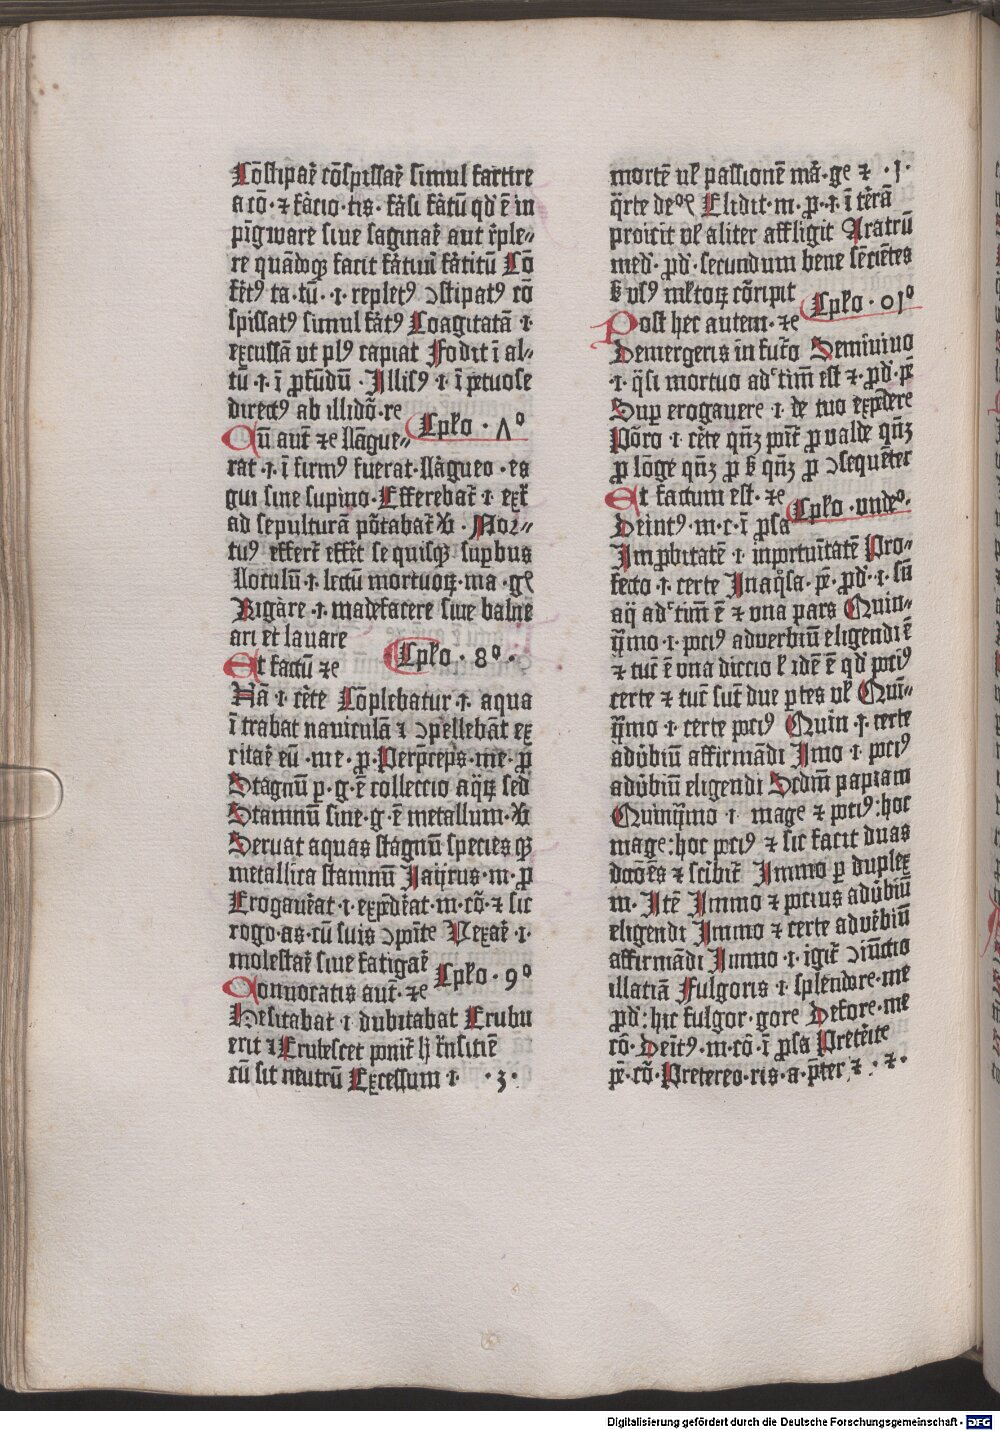 Cōstipar̄ cōspissar̄ simul fartire
a cō · ⁊ fa̅rcio · tis · farsi fartū qd' ē in
pīgware siue saginar̄ aut r̄ple⸗
re quādoqꝫ facit fartuū fartitū Cō
fertꝰ ta · tū · ı · repletꝰ ↄstipatꝰ cō
spissatꝰ simul fartꝰ Coagitatā ·ı·
excussā vt plꝰ capiat Fodit ī al⸗
tū ·ı· ī ꝓfūdū · Illisꝰ ·ı· ī petuose
directꝰ ab illidō · re
Cplo · Λº
Cū aut̄ ⁊c llāgue⸗
rat ·ı· ī firmꝰ fuerat · llāgueo · es
gui sine supino · Efferebat̄ ı · ext̄
ad sepulturā pōtabat̄ · Mor⸗
tuꝰ effert̄ effert se quisqꝫ supbus
lloculū ·ı· lectū mortuoꝝ · ma · gͤ
Rigare ·ı· madefacere siue balne
ari et lauare
Et factū ⁊c Cplo · 8º ·
Nā ·ı· certe Cōplebatur ·ı· aqua
ī trabat nauiculā ⁊ ↄpellebāt ex
citar̄ eū · me · ꝓ · Perp̄ceps · me · ꝓ
Stagnū p · g · ē colleccio aqꝝ sed
Stamnū sine · g · ē metallum ·
Seruat aquas stagnū species qꝫ
metallica stamnū Jayrus · m · ꝓ
Erogauerat · ı · expēderat · m · cō · ⁊ sic
rogo · as · cū suis ↄpōite Vexar̄ ·ı·
molestar̄ siue fatigar̄
Conuocatis aut̄ · ⁊c Cplo · 9º
Hesitabat ı dubitabat Erubu
erit ⁊ Erubescet ponit̄ lꝫ trāsitiē
cū sit neutrū Excessum ı · · 3 ·
mortē vl passionē mā · gͤ ⁊ · ȷ ·
q̄rte de Elidit · m · ꝓ · ı · ī terā
proicit vl aliter affligit Aratrū
med̄ · ꝓd̄ · secundum bene sēciētes
vsꝰ ml̄toꝝ cōripit
Cplo · 01º
Post hec autem · ⁊c
Demergeris in futō Semiuiuo
·ı· q̄si mortuo adtīm est ⁊ · ꝓd̄ · pē
Sup erogauere ·ı· de tuo expēdere
Pōro ·ı· certe qn̄ꝫ poīt̄ ꝓ valde qn̄ꝫ
ꝓ lōge qn̄ꝫ ꝓ qn̄ꝫ ꝓ ↄsequēter
Et factum est · ⁊c
Cplo · vndeº ·
Deintꝰ · m · c · ī ꝓsa
Improbitatē ·ı· inportuītatē Pro⸗
fecto ·ı· certe Inaq̄sa · pē · ꝓd̄ · ı · sū
aq̄ adtīm ē ⁊ vna pars Quin⸗
ỹmo ·ı· pociꝰ aduerbiū eligendi ē
⁊ tūc ē vna diccio l idē ē qd' pociꝰ
certe ⁊ tūc sūt due ptes vl Quī⸗
ỹmo ·ı· certe pociꝰ Quin ·ı· certe
aduerbiū affirmādi Imo ·ı· pociꝰ
aduerbiū eligendi Scdm̄ papiam
Quinỹmo ·ı· mage ⁊ pociꝰ : hoc
mage : hoc pociꝰ ⁊ sic facit duas
dcōēs ⁊ scibit̄ Immo p duplex
m · Itē Immo ⁊ pocius aduerbiū
eligendi Immo ⁊ certe aduerbiū
affirmādi Immo ·ı· igit̄ ↄiūctio
illatiā Fulgoris ·ı· splendore · me
ꝓd̄ : hic fulgor · gore Defore · me
cō · Deītꝰ · m · cō · ī ꝓsa Preterite
pē · cō · Pretereo · ris · a · pter ⁊ · ⁊ ·
Digitalisierung gefördert durch die Deutsche Forschungsgemeinschaft - DFG